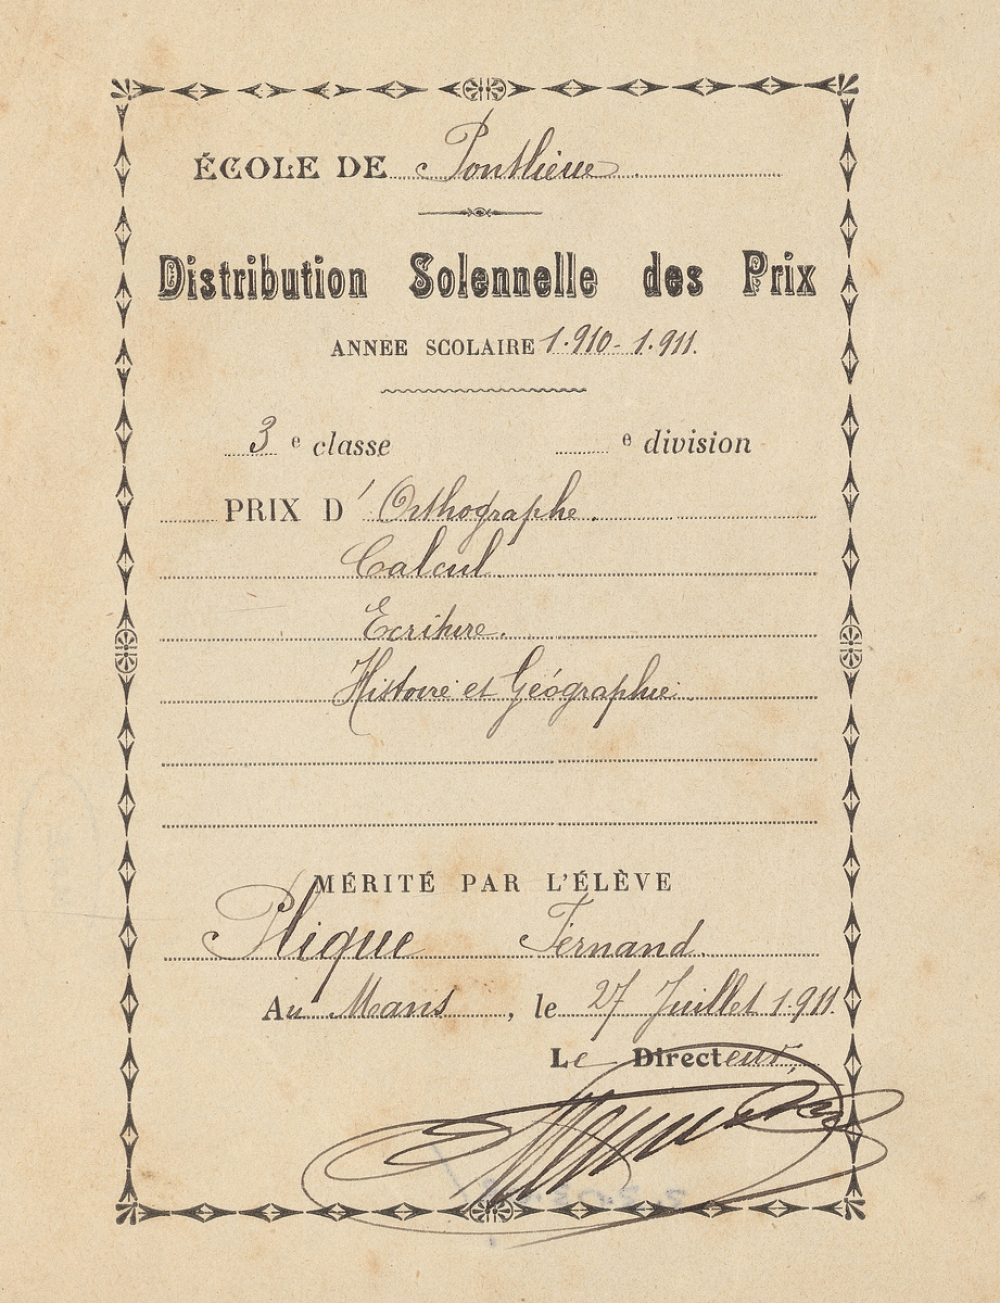 ÉCOLE DE Pontlieue
Distribution Solennelle des Prix
ANNEE SCOLAIRE 1.910 - 1.911.
3 e classe e division
PRIX D' Orthographe.
Calcul.
Ecriture.
Histoire et Géographie.
MÉRITÉ PAR L'ÉLÈVE
Plique Fernand.
Au Mans, le 27 Juillet 1.911.
Le Directeur,